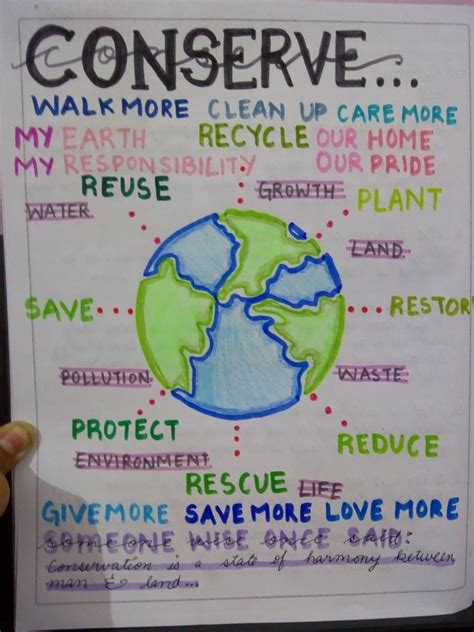 CONSERVE...
conserve
WALK MORE CLEAN UP CARE MORE
MY EARTH RECYCLE OUR HOME
MY RESPONSIBILITY OUR PRIDE
REUSE GROWTH PLANT
WATER
LAND
SAVE RESTOR
POLLUTION WASTE
PROTECT REDUCE
ENVIRONMENT
RESCUE LIFE
GIVE MORE SAVE MORE LOVE MORE
SOMEONE WISE ONCE SAID:
someone wise once said:
Conservation is a state of harmony between
man & land...